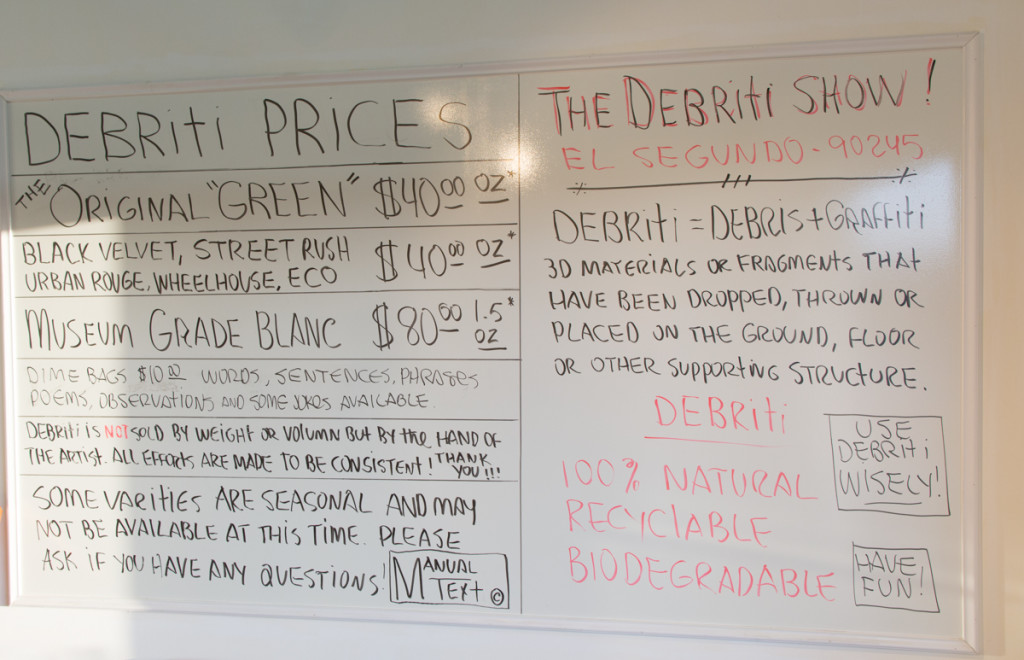 DEBRITI PRICES
THE "ORIGINAL "GREEN" $40.00 OZ*
BLACK VELVET, STREET RUSH
URBAN ROUGE, WHEELHOUSE, ECO $40.00 OZ*
MUSEUM GRADE BLANC $80.00 1.5* OZ
DIME BAGS $10.00 WORDS, SENTENCES, PHRASES
POEMS, OBSERVATIONS AND SOME JOKES AVAILABLE.
DEBRITI IS NOT SOLD BY WEIGHT OR VOLUMN BUT BY the HAND OF
THE ARTIST. ALL EFFORTS ARE MADE TO BE CONSISTENT! THANK
YOU!!!
SOME VARITIES ARE SEASONAL AND MAY
NOT BE AVAILABLE AT THIS TIME. PLEASE
ASK IF YOU HAVE ANY QUESTIONS!
MANUAL
TEXT ©
THE DEBRITI SHOW!
EL SEGUNDO - 90245
DEBRITI = DEBRIS + GRAFFITI
3D MATERIALS OR FRAGMENTS THAT
HAVE BEEN DROPPED, THROWN OR
PLACED ON THE GROUND, FLOOR
OR OTHER SUPPORTING STRUCTURE.
DEBRITI
100% NATURAL
RECYCLABLE
BIODEGRADABLE
USE
DEBRITI
WISELY!
HAVE
FUN!